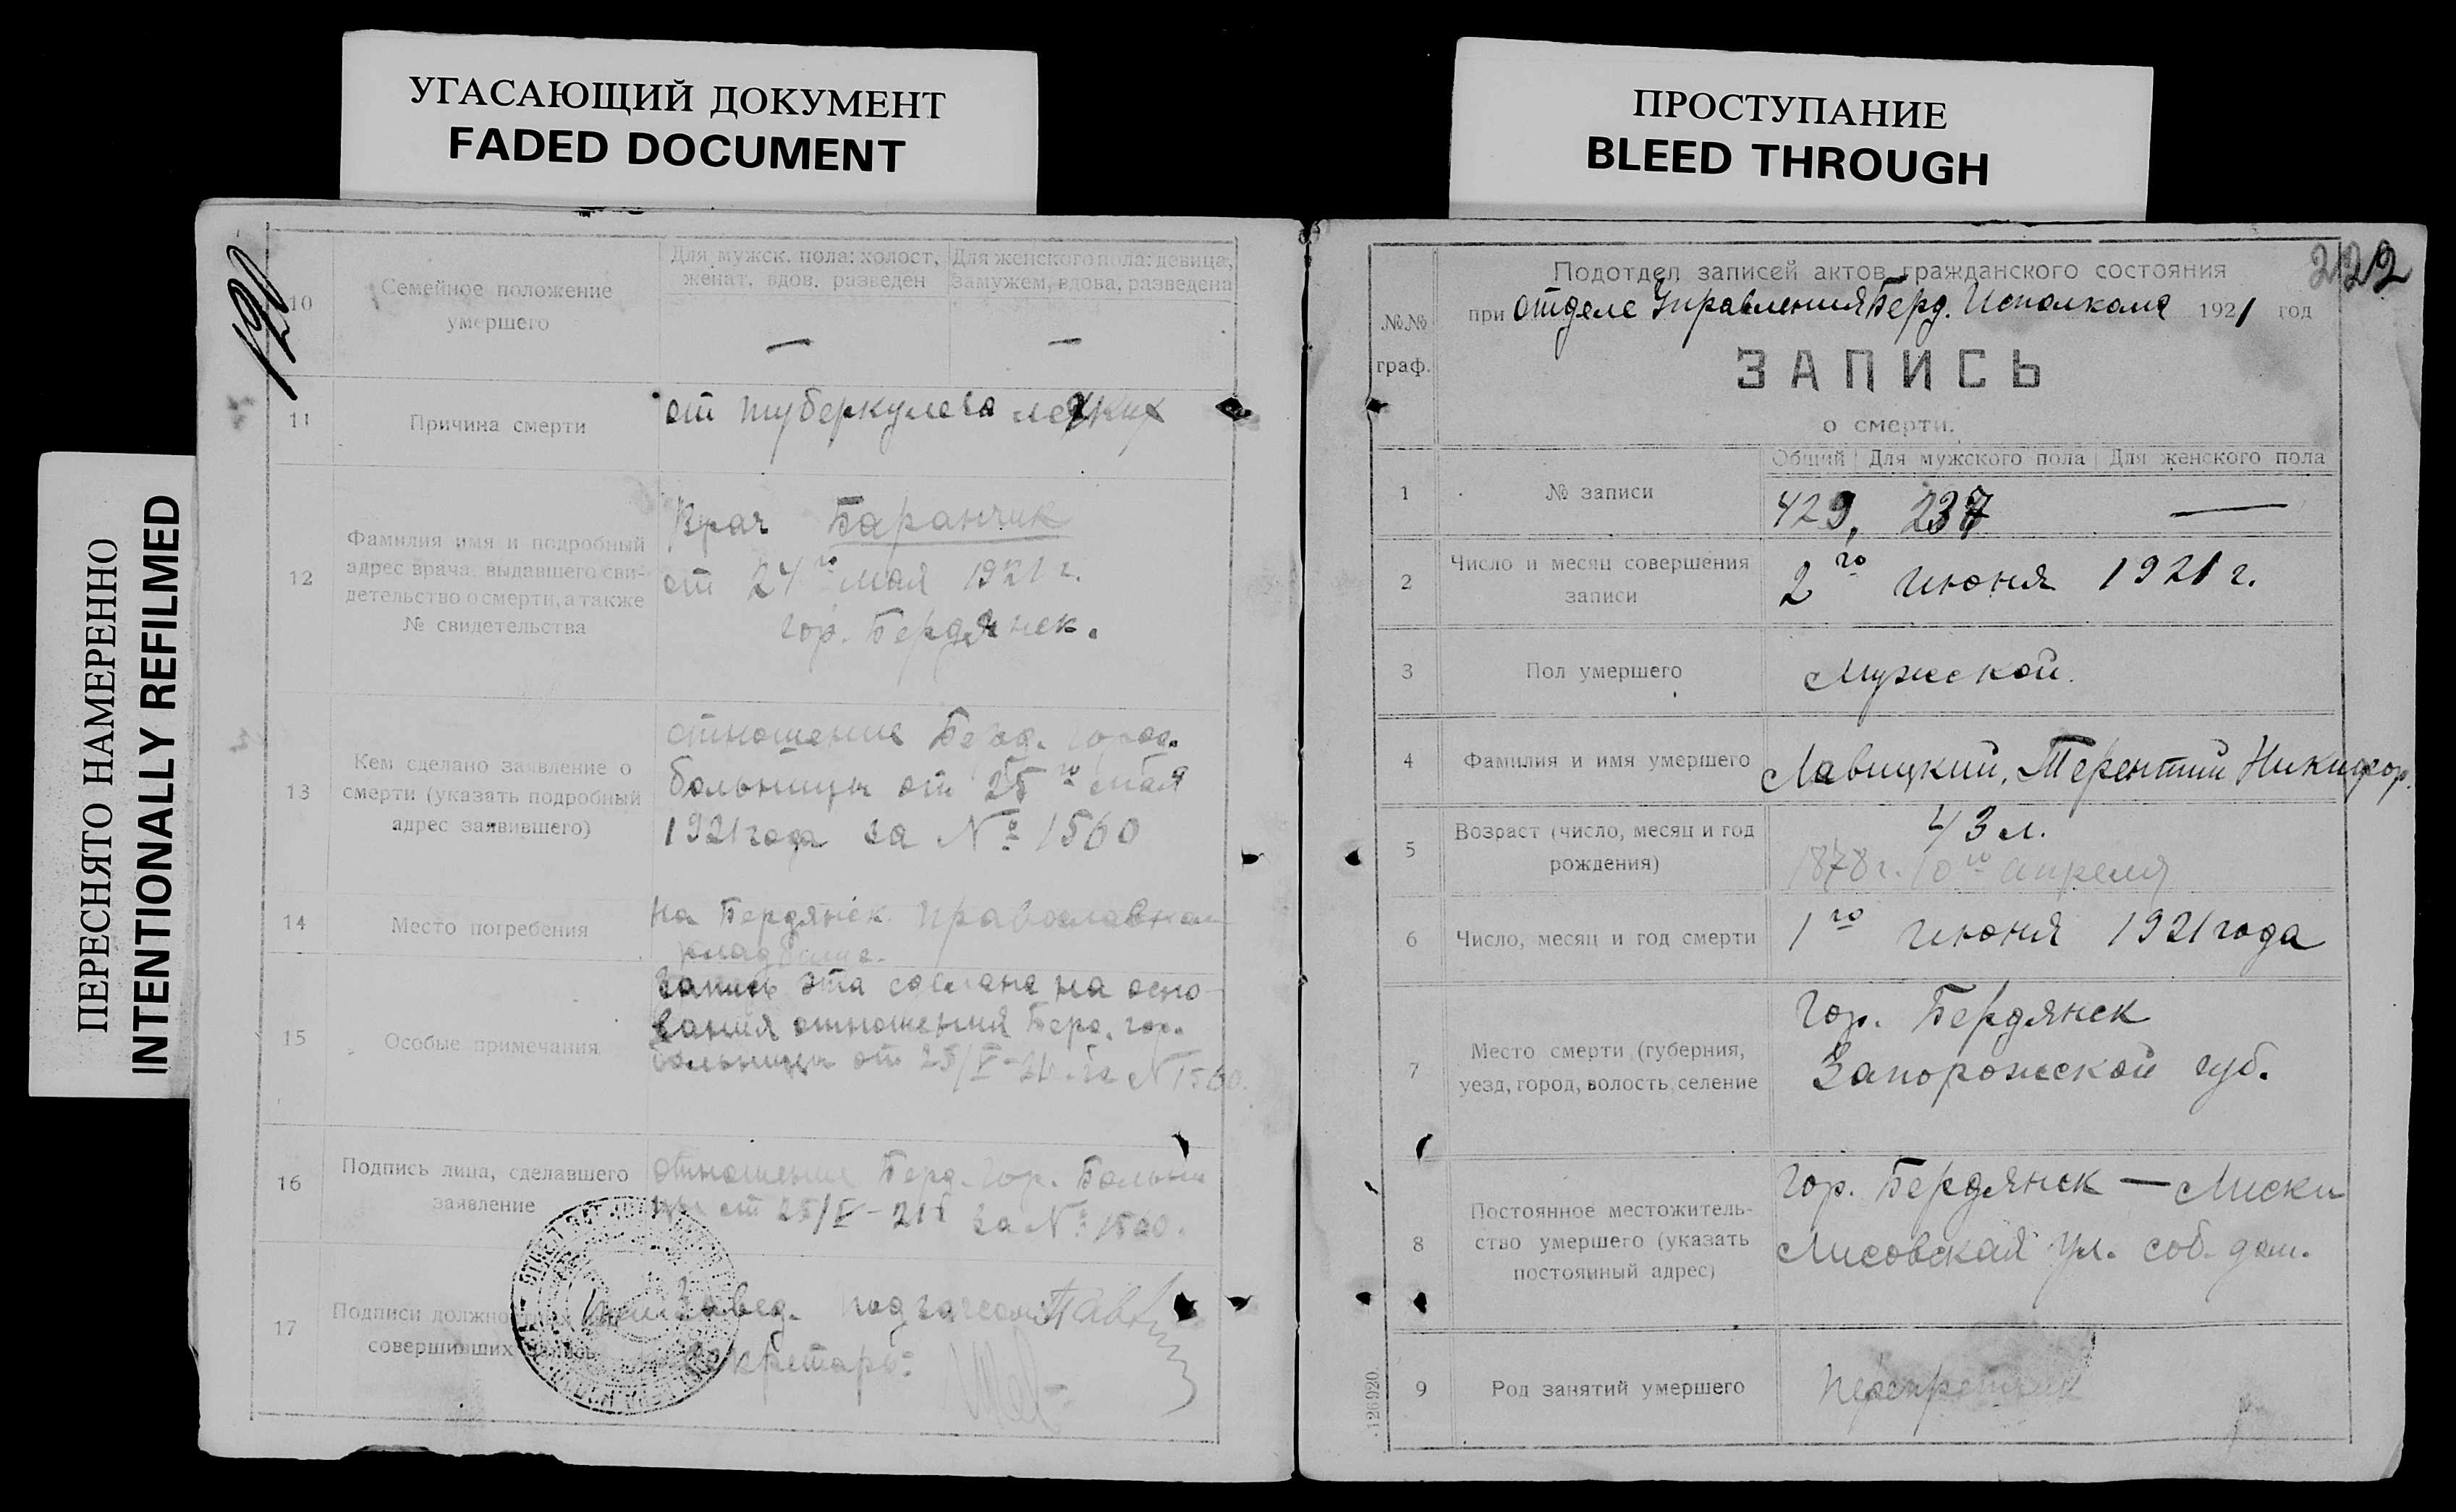 УГАСАЮЩИЙ ДОКУМЕНТ
FADED DOCUMENT
ПРОСТУПАНИЕ
BLEED THROUGH
ПЕРЕСНЯТО НАМЕРЕННО
INTENTIONALLY REFILMED
120
10
Семейное положение
умершего
Для мужск. пола: холост,
женат, вдов. разведен
Для женского пола: девица,
замужем, вдова, разведена
— —
11
Причина смерти
от туберкулеза легких
12
Фамилия имя и подробный
адрес врача, выдавшего сви-
детельство о смерти, а также
№ свидетельства
Врач Баранчик
от 24го мая 1921 г.
гор. Бердянск.
13
Кем сделано заявление о
смерти (указать подробный
адрес заявившего)
отношение Берд. город.
больницы от 25го мая
1921 года за № 1560
14
Место погребения
на Бердянск. православном
кладбище.
15
Особые примечания
Запись эта сделана на осно-
вания отношения Берд. гор.
больницы от 25/V-21 г. за № 1560.
16
Подпись лица, сделавшего
заявление
отношение Берд. гор. Больни
цы от 25/V-21 г. за № 1560.
17
Подписи должностных
совершивших запись
Завед. подзагсом
Секретарь:
№№
граф.
2122
Подотдел записей актов гражданского состояния
при отделе Управления Берд. Исполкома 1921 год
ЗАПИСЬ
о смерти.
Общий Для мужского пола Для женского пола
1
№ записи
429, 237 —
2
Число и месяц совершения
записи
2го июня 1921 г.
3
Пол умершего
Мужской.
4
Фамилия и имя умершего
Лавицкий, Терентий Никифор.
5
Возраст (число, месяц и год
рождения)
43 л.
1878 г. 10го апреля
6
Число, месяц и год смерти
1го июня 1921 года
7
Место смерти (губерния,
уезд, город, волость, селение
Гор. Бердянск
Запорожской губ.
8
Постоянное местожитель-
ство умершего (указать
постоянный адрес)
Гор. Бердянск — Лиски
Лисовская ул. соб. дом.
9
Род занятий умершего
126920